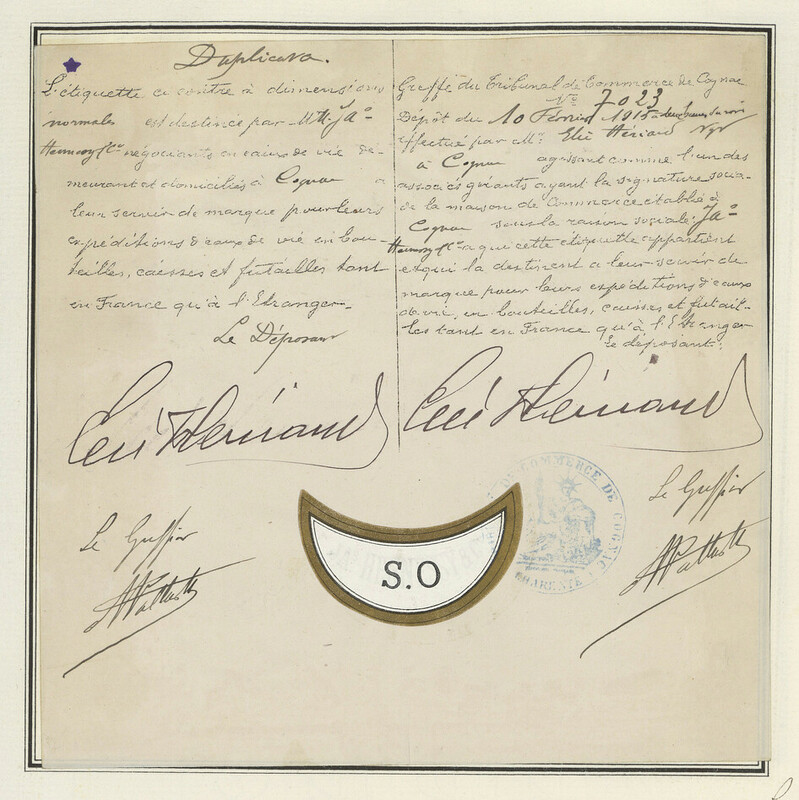 Duplicata.
L'étiquette ci contre à dimensions
normales est destinée par M.M. Jas
Hennessy & Co négociants en eaux de vie de-
meurant et domiciliés à Cognac a
leur servir de marque pour leurs
expéditions d'eaux de vie en bou-
teilles, caisses et futailles tant
en France qu'à l'Etranger.
Le Déposant
Greffe du Tribunal de Commerce de Cognac
No 7023
Dépôt du 10 Février 1915 à deux heures du soir
effectué par Mr. Elie Hériard
à Cognac agissant comme l'un des
associés gérants ayant la signature socia-
le de la maison de Commerce établie à
Cognac sous la raison sociale: Jas
Hennessy & Co a qui cette étiquette appartient
et qui la destinent a leur servir de
marque pour leurs expéditions d'eaux
de vie, en bouteilles, caisses et futail-
les tant en France qu'à l'Etranger
le déposant:
Elie Hériard
Elie Hériard
Le Greffier
Le Greffier
DE COMMERCE DE COGNAC
CHARENTE
S.O